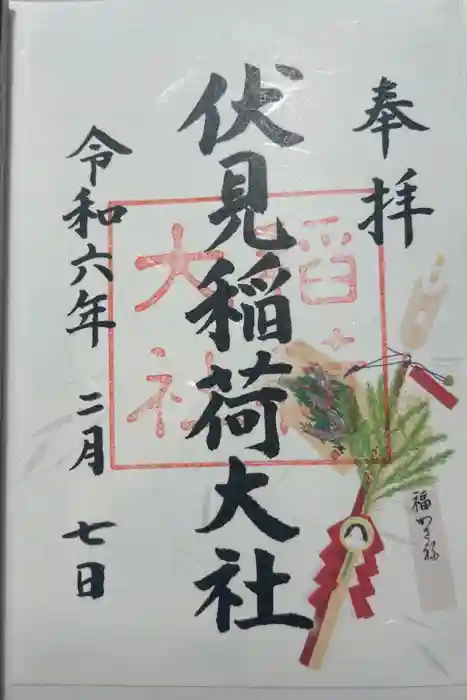 奉拝
伏見稲荷大社
令和六年 二月 七日
大社
福